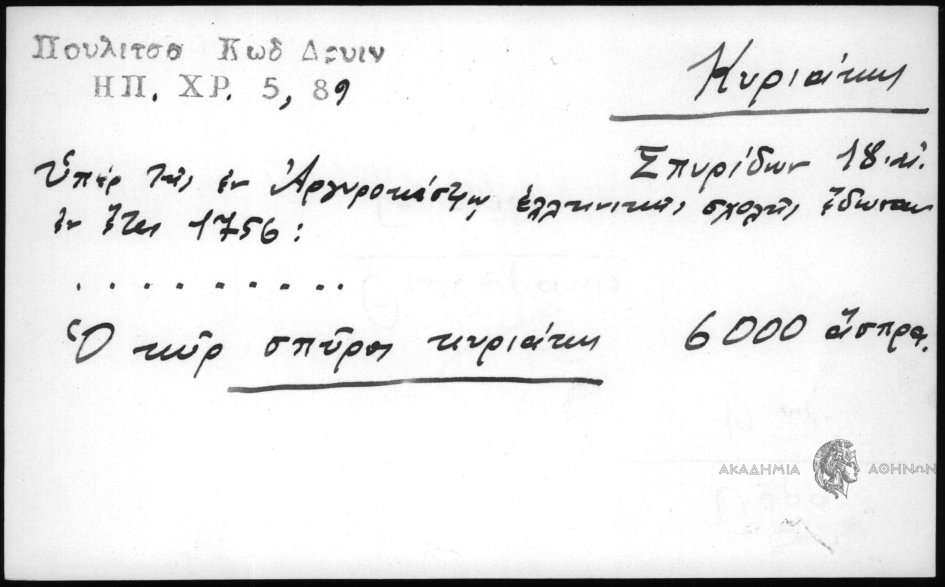 Πουλιτσα Κωδ Δρυιν
ΗΠ. ΧΡ. 5, 89
Κυριάκης
Σπυρίδων 18. αἰ.
Ὑπὲρ τῆς ἐν Ἀργυροκάστρῳ ἑλληνικῆς σχολῆς ἔδωκαν
ἐν ἔτει 1756:
. . . . . . . . . .
Ὁ κῦρ σπῦρος κυριάκης 6000 ἄσπρα.
ΑΚΑΔΗΜΙΑ ΑΘΗΝΩΝ